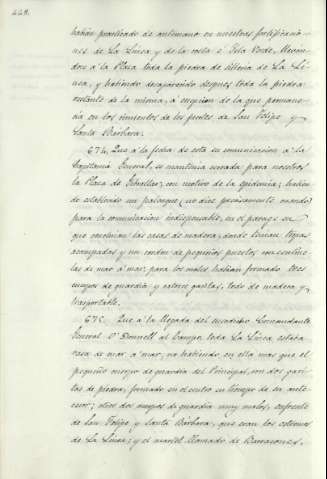 habian practicado de antemano en nuestras fortificacio-
nes de La Linea y de la costa é Isla Verde, llevan-
dose á la Plaza toda la piedra de sillería de La Lí-
nea, y habiendo desaparecido despues toda la piedra
restante de la misma, á escepcion de la que permane-
cia en los cimientos de los fuertes de San Felipe y
Santa Bárbara.
674. Que á la fecha de esta su comunicacion á la
Capitanía General, se mantenia cerrada para nosotros
la Plaza de Gibraltar, con motivo de la epidemia; habien-
do establecido un palenque, no dice precisamente cuando
para la comunicacion indispensable, en el parage en
que concluian las casas de madera, donde tenian tropas
acampadas y un cordon de pequeños puestos con centine-
las de mar á mar; para los cuales habian formado tres
cuerpos de guardia y catorce garitas, todo de madera y
trasportable.
675. Que á la llegada del susodicho Comandante
General O'Donnell al Campo, toda La Línea estaba
rasa de mar á mar, no habiendo en ella mas que el
pequeño cuerpo de guardia del Principal, con dos gari-
tas de piedra, formado en el centro en tiempo de su ante-
cesor; otros dos cuerpos de guardia muy malos, enfrente
de San Felipe y Santa Bárbara, que eran los estremos
de La Línea; y el cuartel llamado de Barracones.